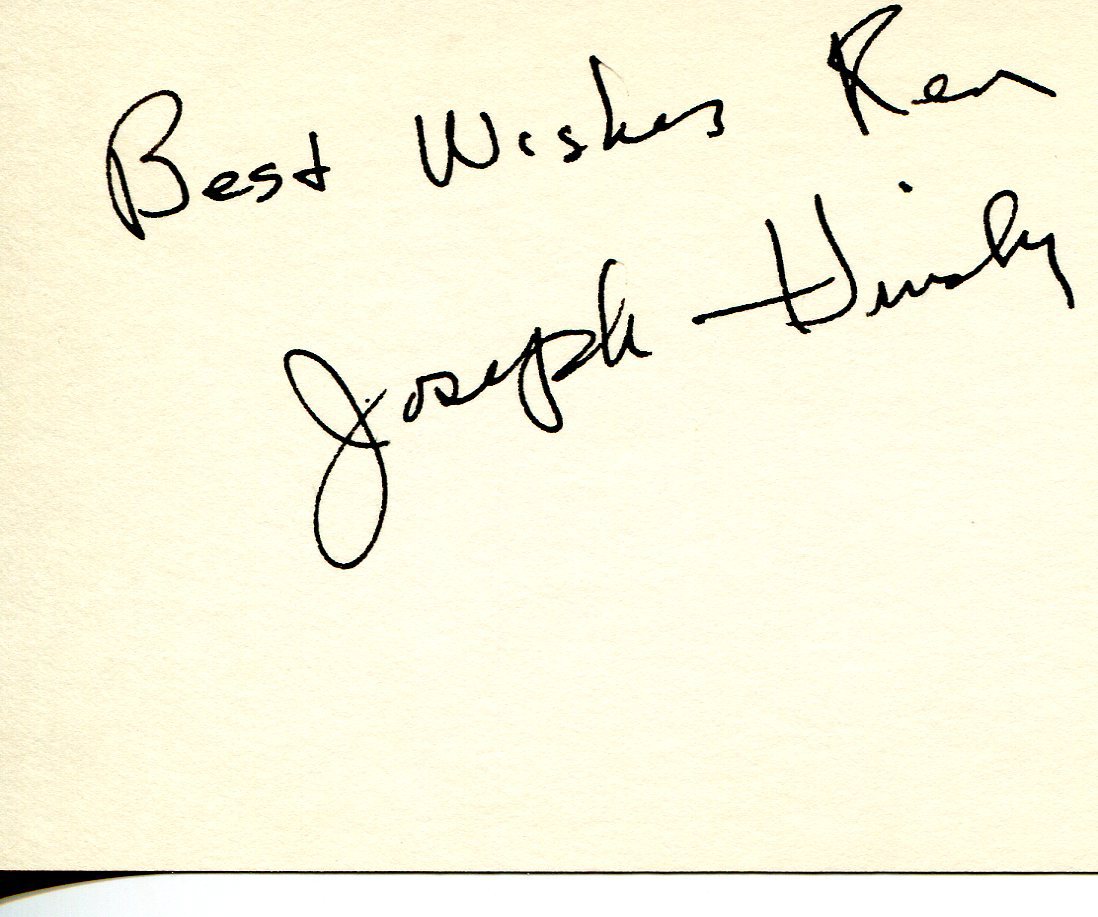 Best Wishes Ken
Joseph